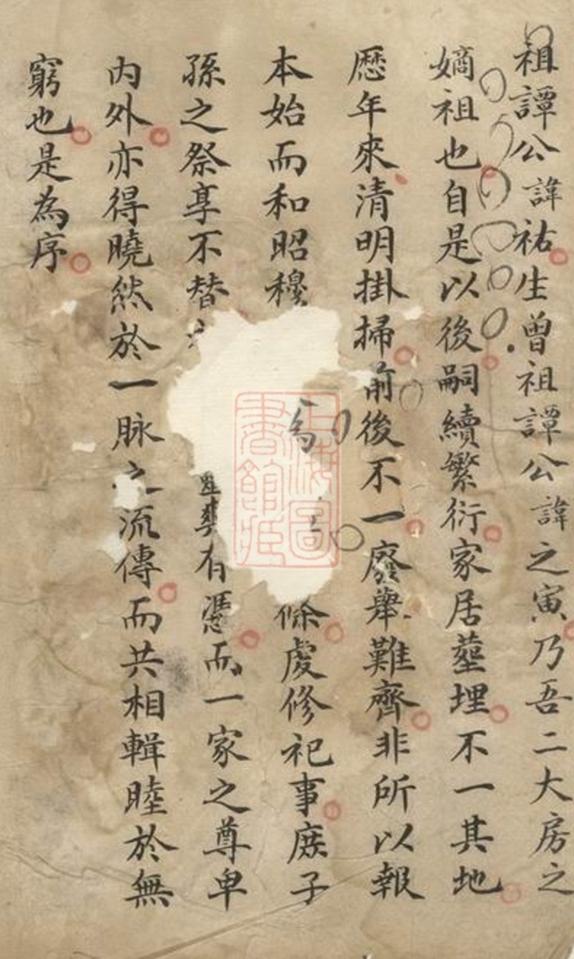 祖譚公諱祐生曾祖譚公諱之寅乃吾二大房之
嫡祖也自是以後嗣續繁衍家居塟埋不一其地
歷年來清明掛掃前後不一廢舉難齊非所以報
本始而和昭穆 虔修祀事庶子
孫之祭享不替 有憑而一家之尊卑
內外亦得曉然於一脉之流傳而共相輯睦於無
窮也是為序
上海圖書館藏